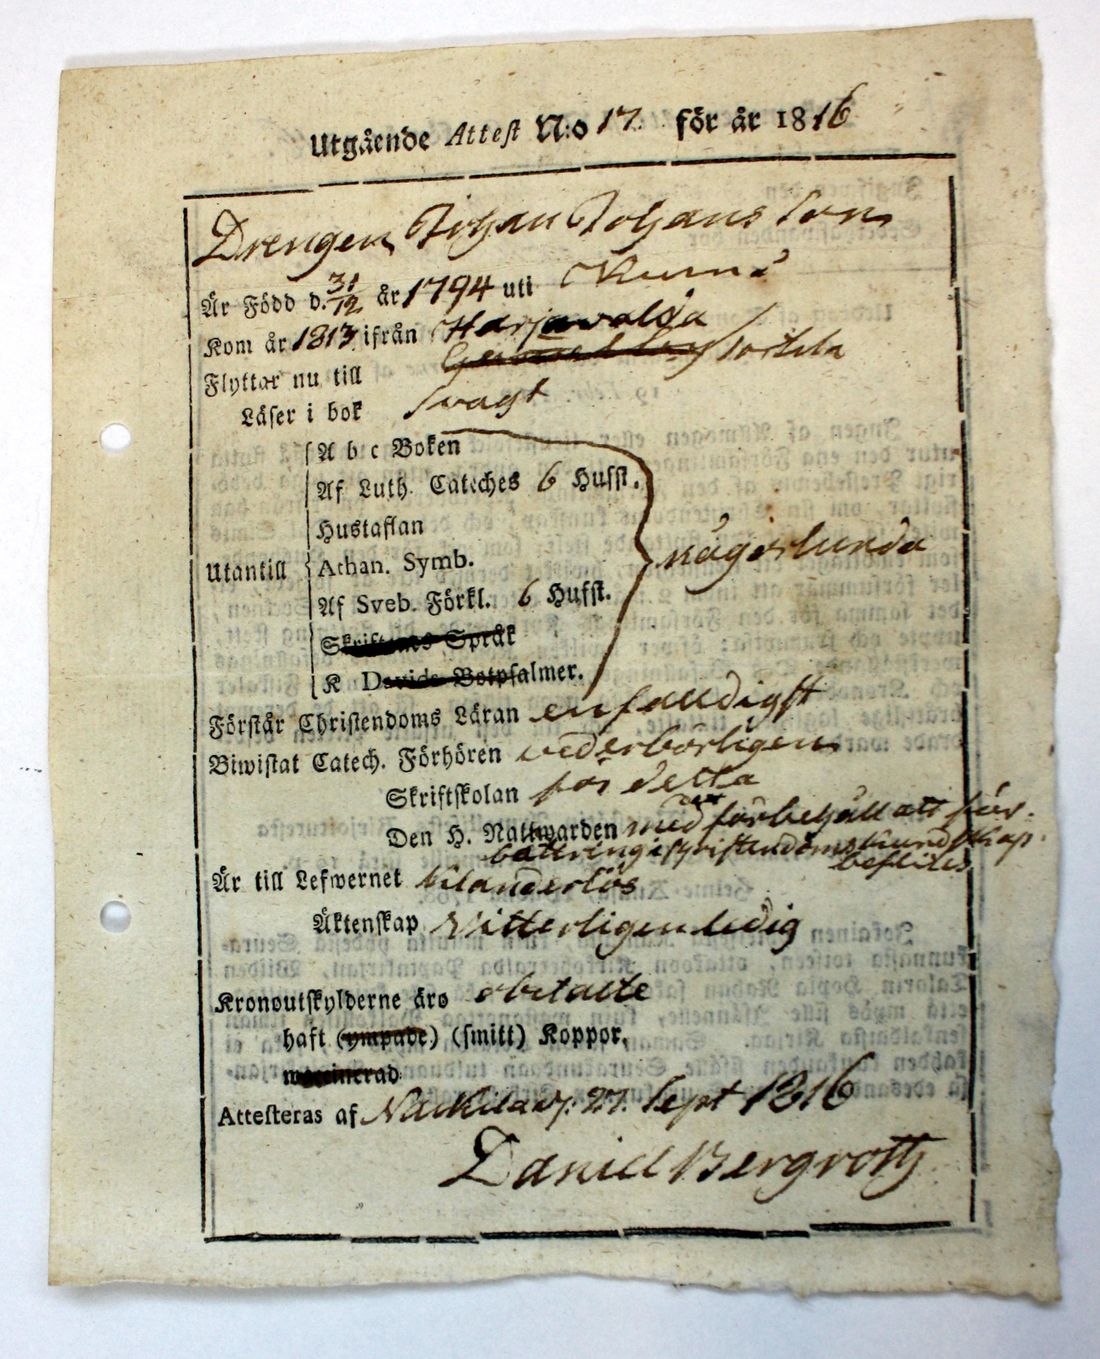 Utgående Attest N:o 17. för år 1816
Drengen Johan Johansson
Är Född d. 31/12 år 1794 uti Kumå
Kom år 1813 ifrån Harjavalda
Flyttar nu till Torttila
Läser i bok svagt
A b c Boken
Af Luth. Cateches 6 Hufst.
Hustaflan
Utantill Athan. Symb. någorlunda
Af Sveb. Förkl. 6 Hufst.
Skriftenes Språk
K Davids Botpsalmer.
Förstår Christendoms Läran enfaldigst
Biwistat Catech. Förhören vederbörligen
Skriftskolan för detta
Den H. Nattwarden med förbehåll att för-
bättring i christendoms kundskap
beflites
Är till Lefwernet oklanderlös
Äktenskap Vitterligen ledig
Kronoutskylderne äro obetalte
haft (ympade) (smitt) Koppor,
waccinerad
Attesteras af Nackila d. 27. Sept 1816
Daniel Bergroth